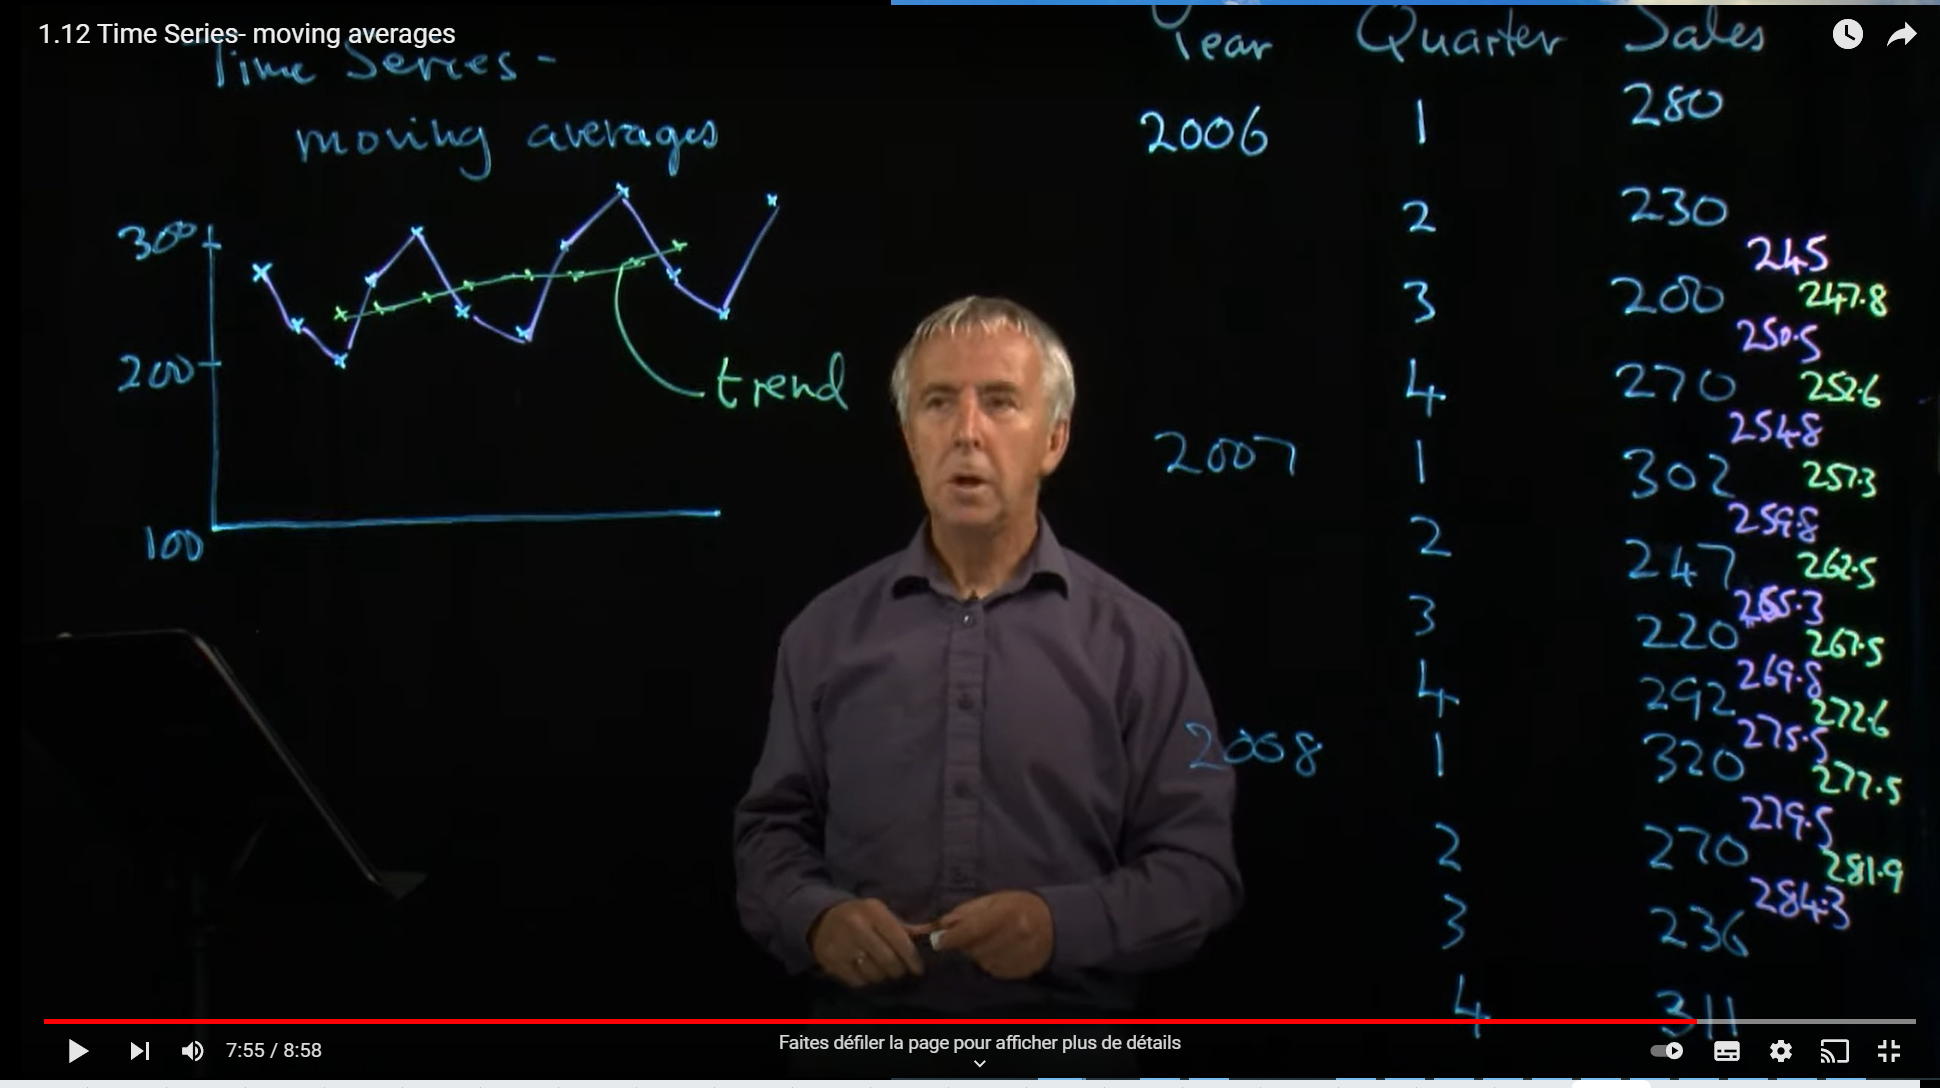 1.12 Time Series- moving averages
Time Series -
moving averages
300
200
100
trend
Year Quarter Sales
2006 1 280
2 230
245
3 200 247.8
250.5
4 270 252.6
254.8
2007 1 302 257.3
259.8
2 247 262.5
265.3
3 220 267.5
269.8
4 292 272.6
275.5
2008 1 320 277.5
279.5
2 270 281.9
284.3
3 236
4 311
7:55 / 8:58
Faites défiler la page pour afficher plus de détails